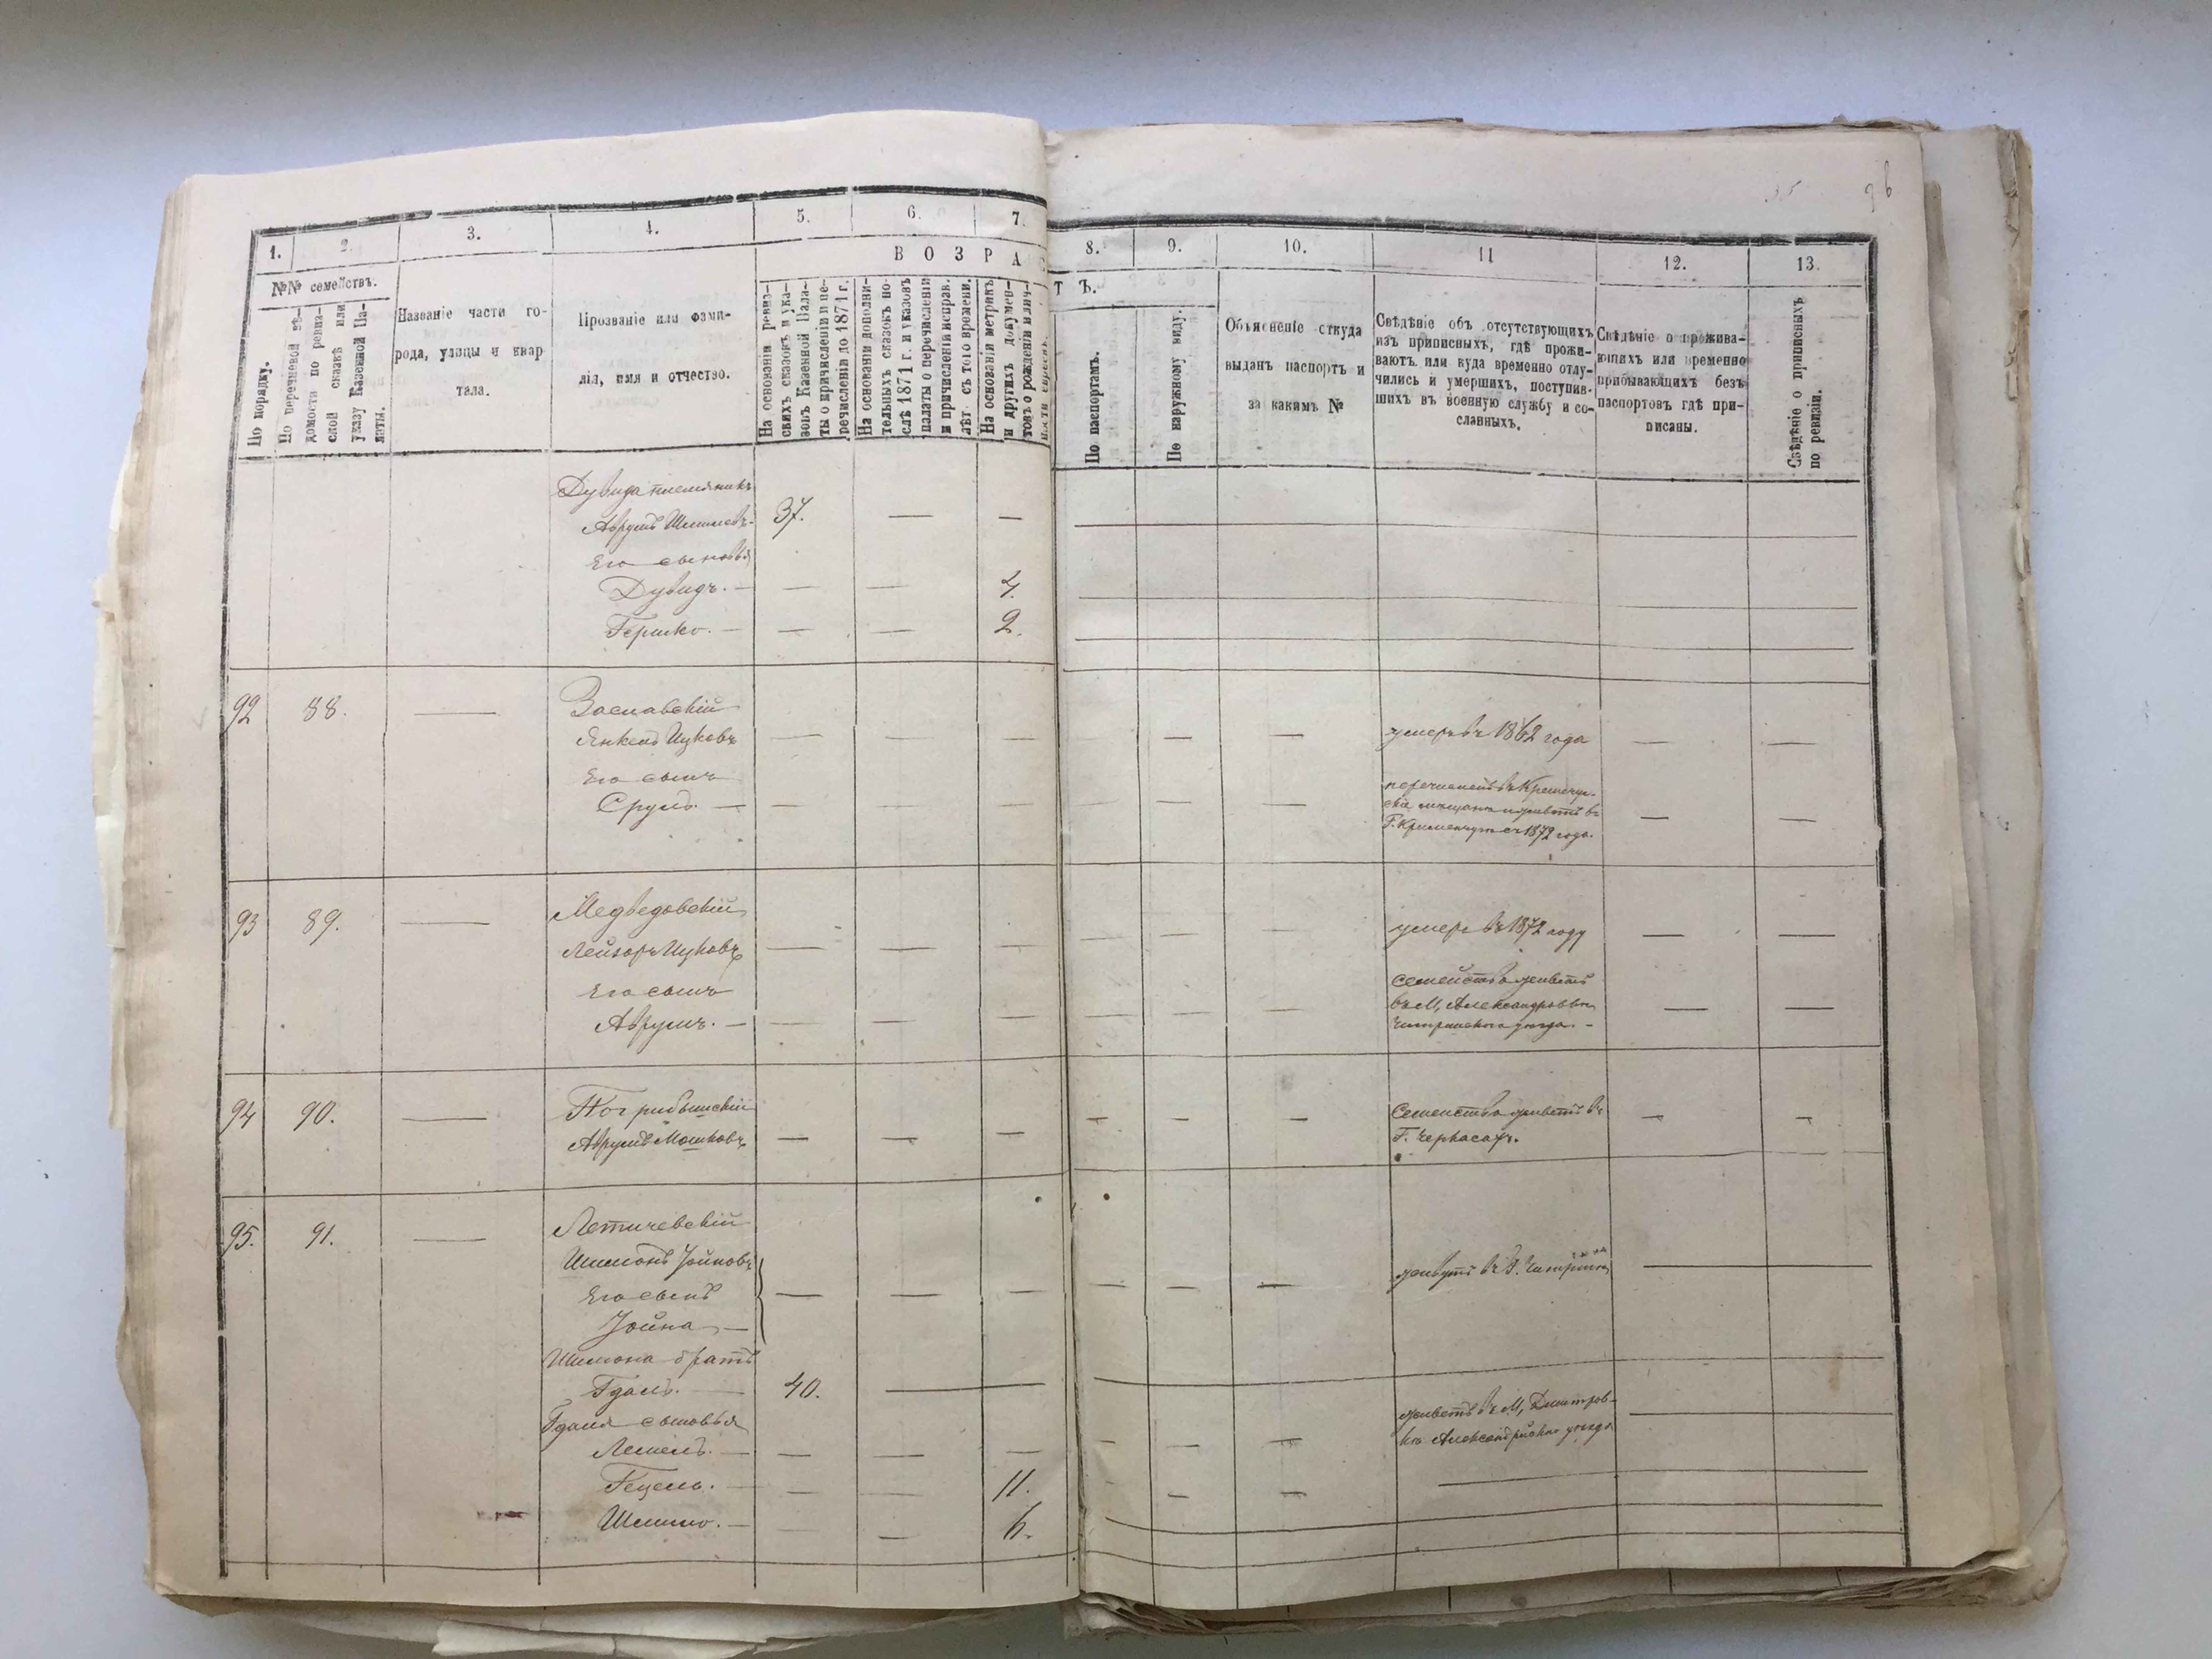 96
1.
2.
3.
4.
5.
6.
7.
8.
9.
10.
11
12.
13.
№№ семействъ.
По порядку.
По перечневой вѣ-
домости по ревиз-
ской сказкѣ или
указу Казенной Па-
латы.
Названіе части го-
рода, улицы и квар
тала.
Прозваніе или фами-
лія, имя и отчество.
ВОЗРАС
ТЪ.
На основаніи ревиз-
скихъ сказокъ и ука-
зовъ Казенной Пала-
ты о причисленіи и пе-
речисленіи до 1871 г.
На основаніи дополни-
тельныхъ сказокъ по-
слѣ 1871 г. и указовъ
палаты о перечисленіи
и причисленіи исправ.
лѣт. съ того времени.
На основаніи метрикъ
и другихъ докумен-
товъ о рожденіи
По паспортамъ.
По наружному виду.
Объясненіе откуда
выданъ паспортъ и
за какимъ №
Свѣдѣніе объ отсутствующихъ
изъ приписныхъ, гдѣ прожи-
ваютъ или куда временно отлу-
чились и умершихъ, поступив-
шихъ въ военную службу и со-
сланныхъ.
Свѣдѣніе о прожива-
ющихъ или временно
прибывающихъ безъ
паспортовъ гдѣ при-
писаны.
Свѣдѣніе о приписныхъ
по ревизіи.
Дувида племяникъ
Аврумъ Шмилевъ - 37. — —
Его сыновья
Дувидъ. — — — 4.
Гершко. — — — 2.
92 88. — Заславскій
Янкель Ицковъ — — — — — умеръ въ 1862 года — —
Его сынъ
Сруль. — — — — — —
перечисленъ въ Кременчуг-
скіе мѣщане и живетъ въ
Г. Кременчугѣ съ 1872 года. — —
93 89. — Медведовскій
Лейзоръ Ицковъ — — — — — — умеръ въ 1872 году — —
Его сынъ
Аврумъ. — — — — — — —
семейство живетъ
въ М, Александровкѣ
Чигринского уѣзда. — — —
94 90. — Погрибинскій
Аврумъ Мошковъ — — — — — —
Семейство живетъ въ
Г. Черкасахъ. — —
95. 91. — Летичевскій
Шимонъ Іойновъ
Его сынъ — — — — — — живутъ въ Г. Чигринѣ —
Іойна —
Шимона братъ
Гдаль. — 40. —
Гдаля сыновья
живетъ въ М, Дмитров-
кѣ Александрійскаго уѣзда —
Лейзель. — — — — — — —
Гецель. — — — 11. — — —
Шмилю. — — — 6.